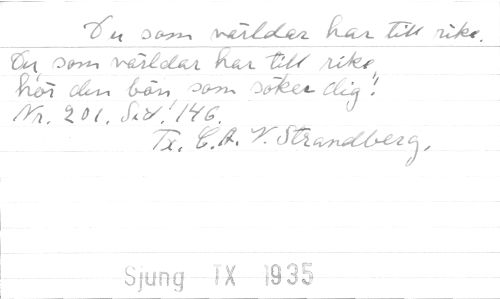 Du som världar har till rike.
Du som världar har till rike,
hör den bön som söker dig!
Nr. 201. Sid. 146.
Tx. C. A. V. Strandberg.
Sjung TX 1935